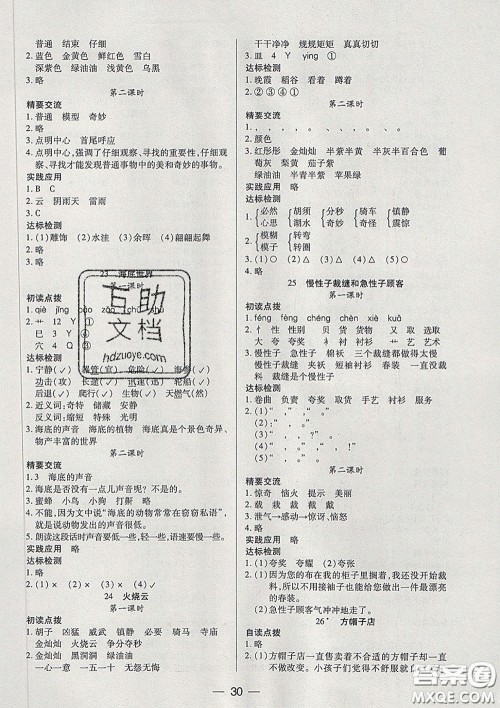 普通 结束 仔细
2. 蓝色 金黄色 鲜红色 雪白
深紫色 绿油油 浅黄色 乌黑
3. 略
第二课时
精要交流
1. 普通 模型 奇妙
2. 略
3. 点明中心 首尾呼应
4. 点明中心,强调了仔细观察、寻找的重要性,仔细观
察、寻找才能发现普通事物中的美和奇妙的事物。
实践应用
1. B C
2. 云 阴雨天 雷雨
3. C
达标检测
1. (1)雕饰 (2)水洼 (3)余晖 (4)翩翩起舞
2. 略
23 海底世界
第一课时
初读点拨
2. 艹 12 Y ①
巳 3 Y ④
穴 4 Q ③
达标检测
1. 宁静(✓)
功击(攻) 长途(✓) 迅速(迅) 轮船(✓)
后退(✓) 爬行(✓) 生物(✓) 天燃气(然)
2. 近义词:奇特 储藏 安静
反义词:缩短 特殊 光明
3. 海底的声音 海底的植物 海底真是个景色奇异、
物产丰富的世界
第二课时
精要交流
1. 3 海底的声音
2. 海底是否没有一点儿声音呢?不是的。
3. 蜜蜂 小鸟 小狗 打鼾 略
4. 不能,因为文中说“海底的动物常常在窃窃私语”,
就是说动物发出的声音很小。
5. 朗读这段话时声音要低一些,轻一些,语速要慢一些。
实践应用 略
达标检测
1. 略
2. (1)× (2)× (3)× (4)✓
24 火烧云
第一课时
初读点拨
1. 胡子 凶猛 威武 镇静 必要 骑马 寺庙
金灿灿 火烧云 争分夺秒
2. 金灿灿 黑洞洞 绿油油
一心一意 一五一十 无怨无悔
干干净净 规规矩矩 真真切切
3. 皿 4 Y yíng ①
达标检测
1. 晚霞 稻谷 看着 蹲着
2. ②③④①
第二课时
精要交流
1. , , , , 。 , 。
2. 颜色
3. 红彤彤 金灿灿 半紫半黄 半灰半百合色 葡
萄灰 梨黄 茄子紫
绿油油 半青半紫 苹果绿
达标检测
1. 必然 胡须 分秒 骑车 镇静
心思 潮水 奇妙 奇异 慎重
2. 模糊 转弯
模子 转圈
3. 略
25 慢性子裁缝和急性子顾客
第一课时
初读点拨
1. féng fèng chéng chèn xiè kuā
2. 性 情 性别 贝 货 货物 又 取 选取
大 夸 夸奖 衤 衬 衬衫 艹 艺 艺术
3. 慢性子 急性子 棉袄 三个裁缝都做得太慢
慢裁缝 夹袄 短袖衬衫 春装 一直没有动手裁料
达标检测
1. 卷曲 负责 夸奖 取货 手艺 衬衫 性子
2. (1)“ , , ”, 。
(2)“ ”, 。“ , 。”
(3): “ ? ?”
第二课时
精要交流
1. 惊奇 恼火 提醒 发誓
2. 截 裁 栽 裁 截
3. 泄气→感动→惊讶、恼怒
达标检测
1. (1)夸奖 (2)夸耀 (3)夸张
2. (1)因为您的布在我的柜子里搁着,我还没开始裁
料,所以不用接袖子也能给您做出一件最漂亮
的春装。
(2)急性子顾客气冲冲地走了。
26* 方帽子店
自读点拨
1. 略
2. (1)方帽子店一直售卖着不合适的方帽子却一直
不做改变。小孩子们觉得不舒服就
30
互助
文档
hdzuoye.com
答案圈
MXQE.COM